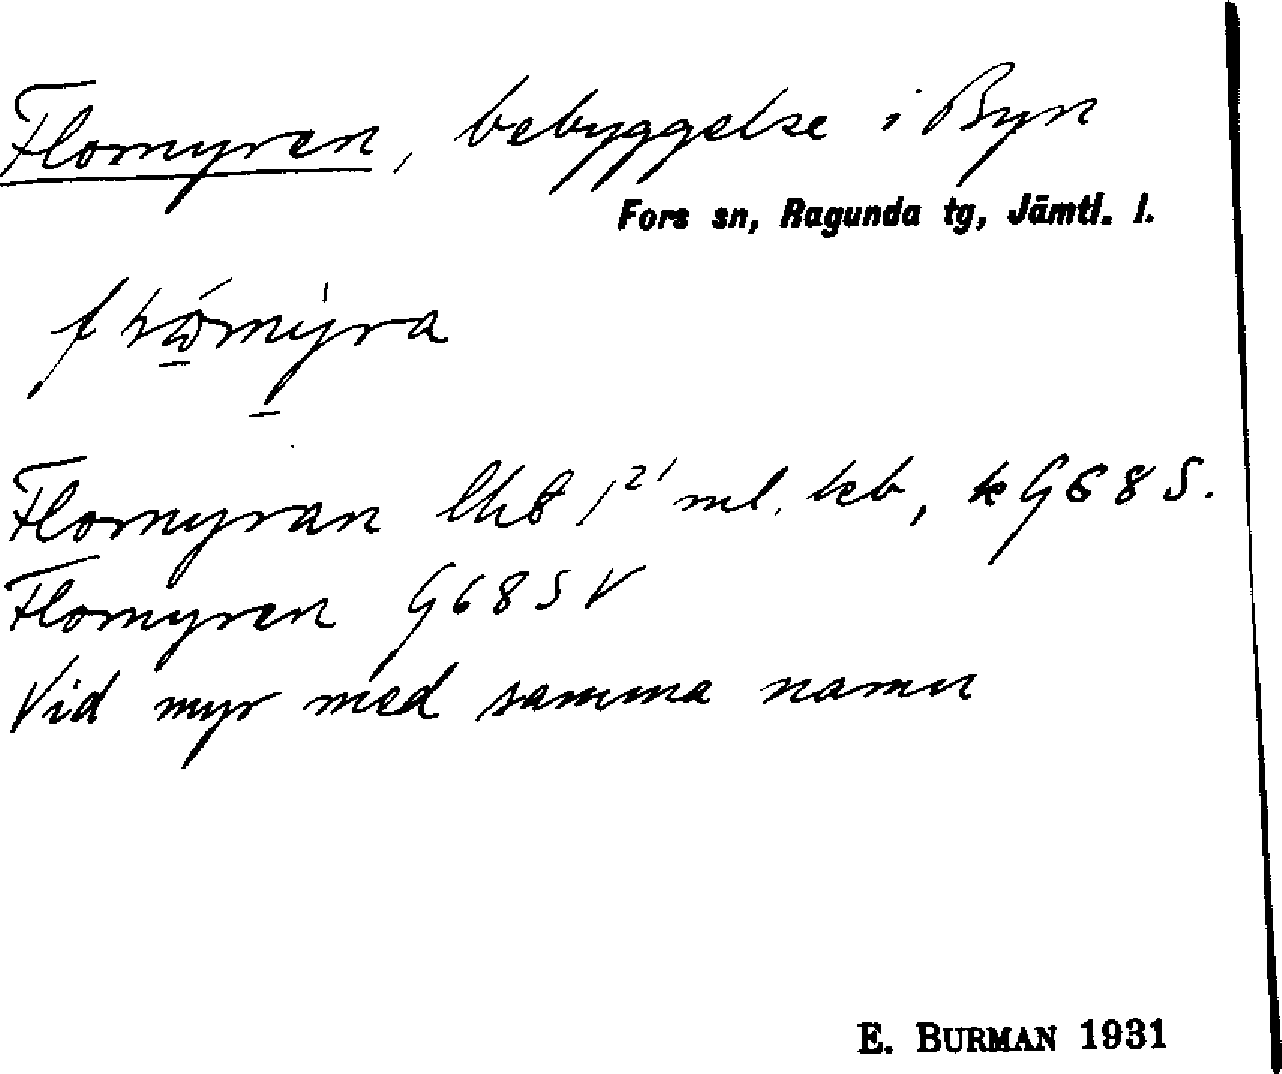 Flomyren, bebyggelse i Byn
Fors sn, Ragunda tg, Jämtl. l.
Flomyran lht 1²¹ ml. kb, k G68 S.
Flomyren G68 S V
Vid myr med samma namn
E. BURMAN 1931